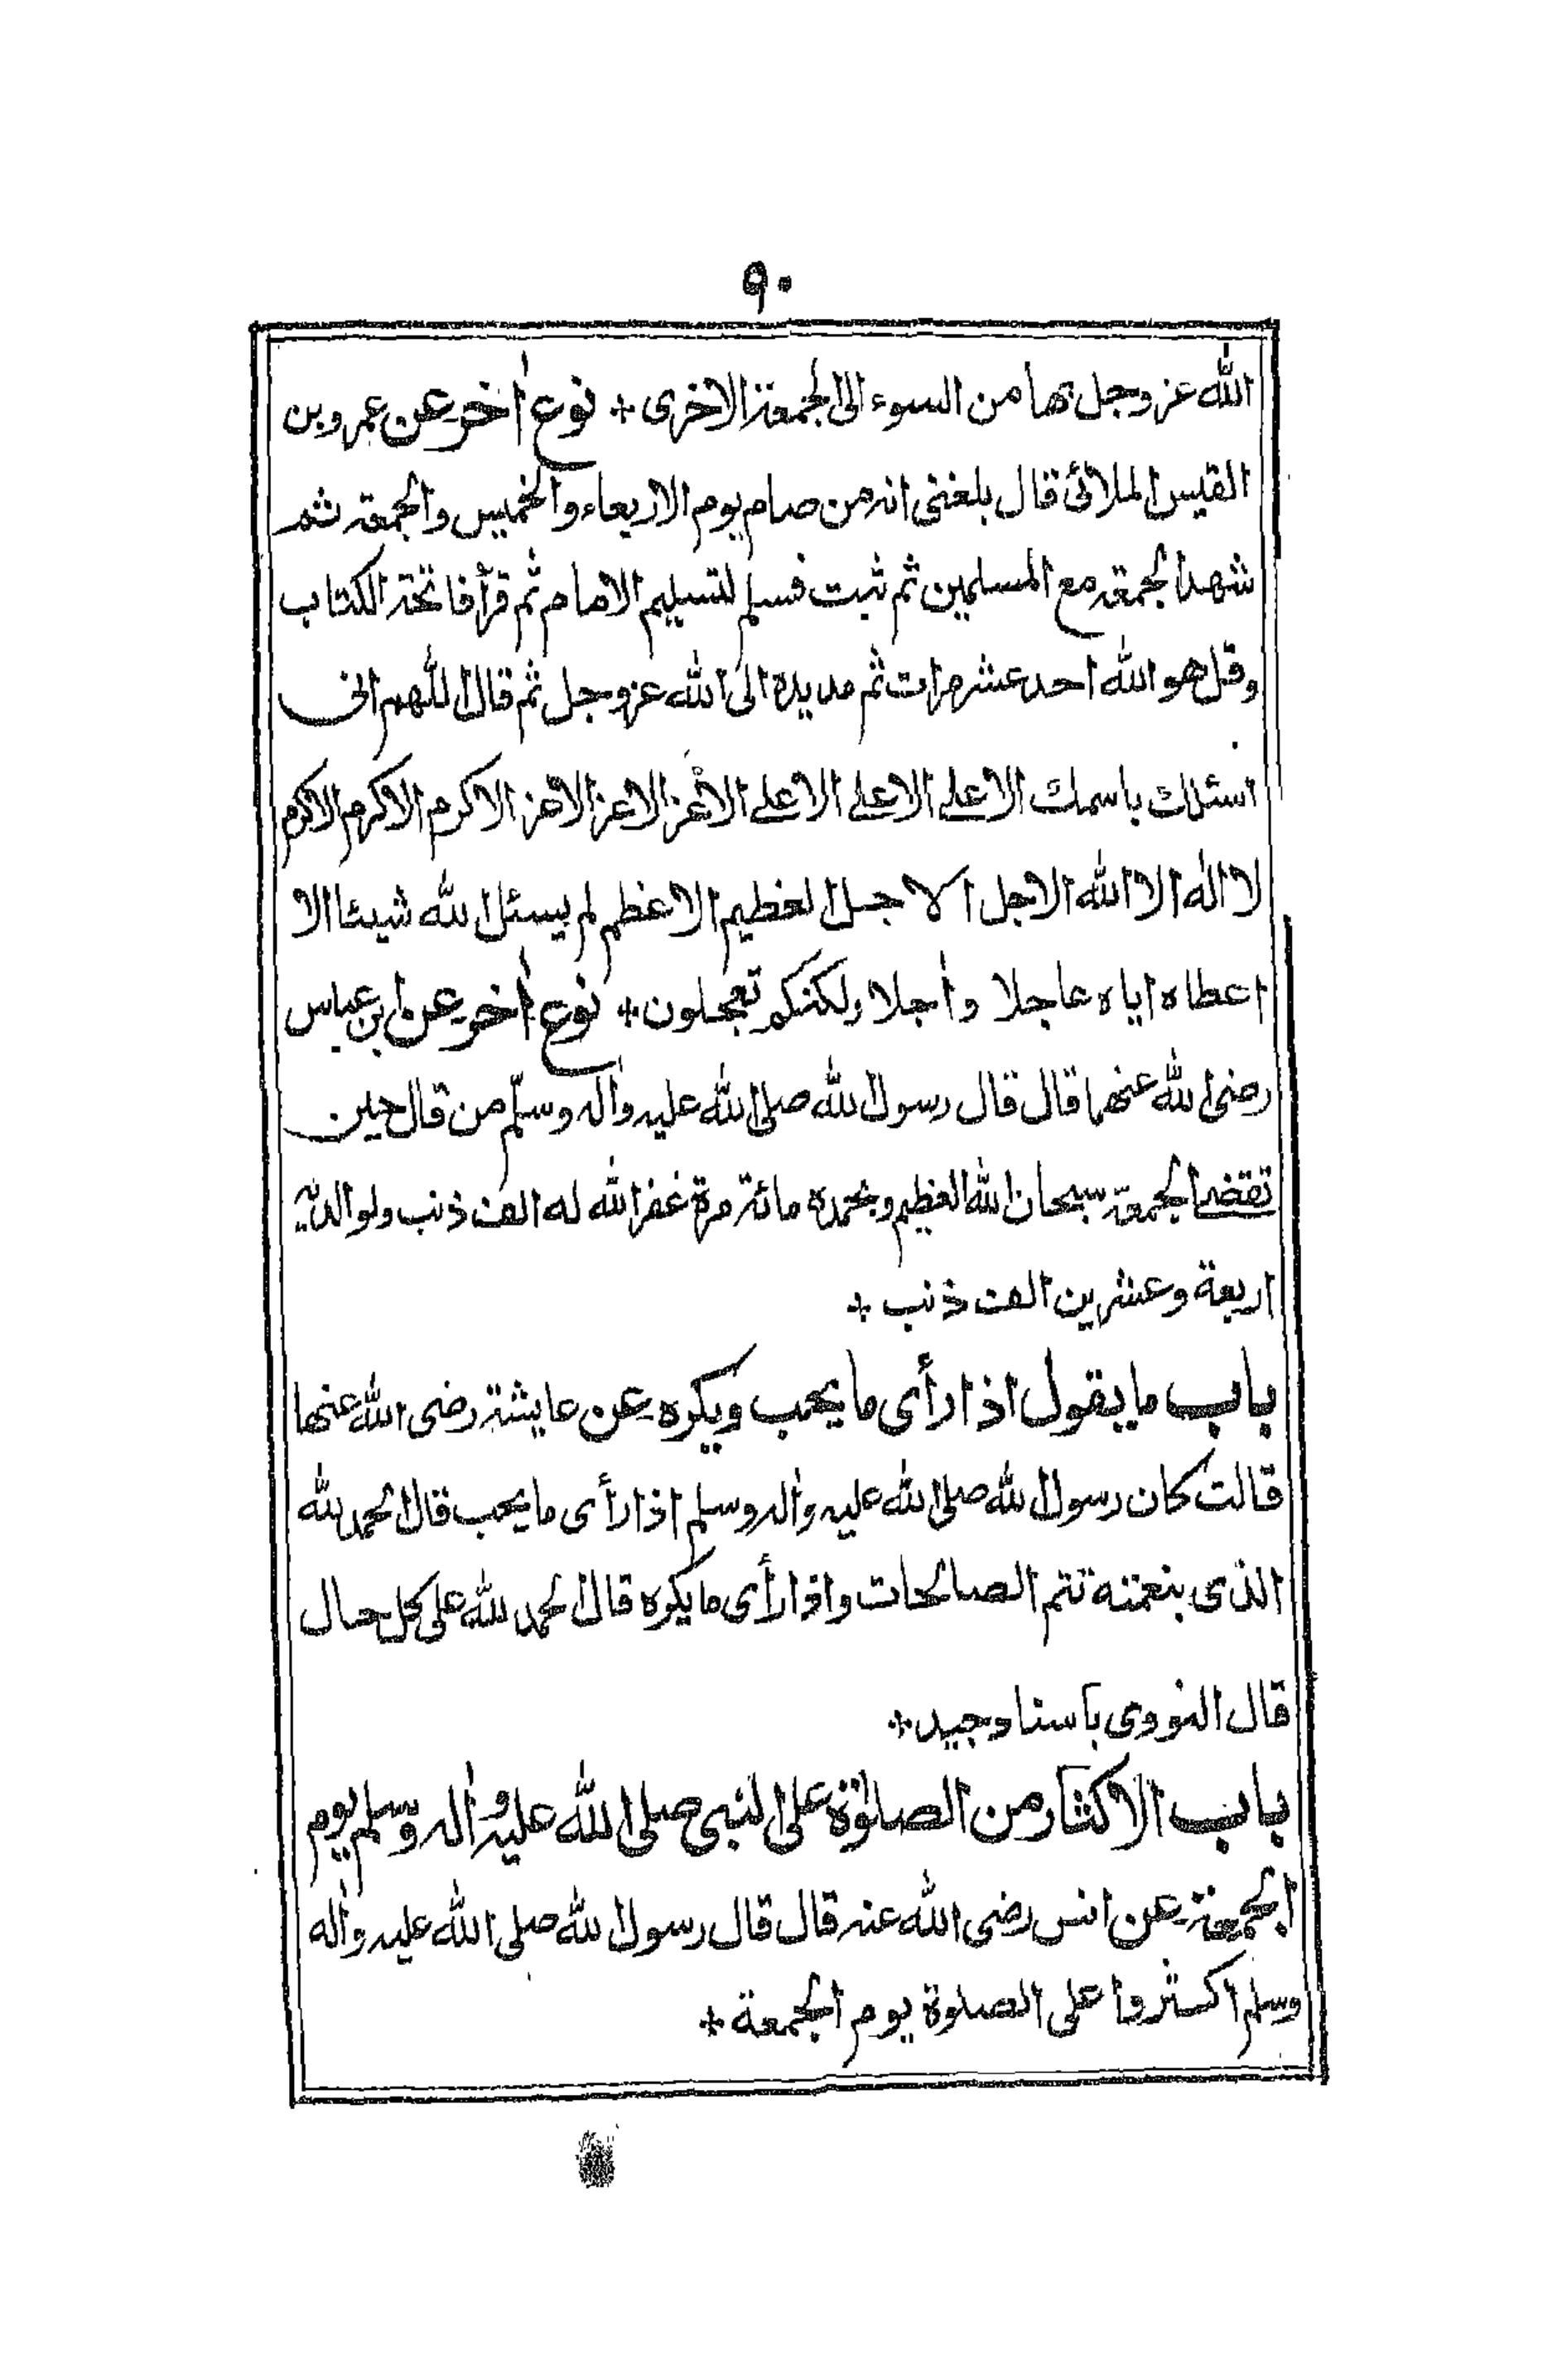 ٩٠
الله عز وجل بها من السوء الى الجمعة الاخرى * نوع اٰخر عن عمرو بن
القيس الملائى قال بلغنى انه من صام يوم الاربعاء والخميس والجمعة ثم
شهد الجمعة مع المسلمين ثم ثبت فسلم لتسليم الامام ثم قرأ فاتحة الكتاب
وقل هو الله احد عشر مرات ثم مد يده الى الله عز وجل ثم قال اللهم انى
اسئلك باسمك الاعلى الاعلى الاعلى الاعز الاعز الاعز الاكرم الاكرم الاكرم
لا اله الا الله الاجل الاجل العظيم الاعظم لم يسئل الله شيئا الا
اعطاه اياه عاجلا واٰجلا ولكنكم تعجلون * نوع اٰخر عن ابن عباس
رضى الله عنهما قال قال رسول الله صلى الله عليه واٰله وسلّم من قال حين
تقضى الجمعة سبحان الله العظيم وبحمده مائة مرة غفر الله له الف ذنب ولوالديه
اربعة وعشرين الف ذنب *
باب ما يقول اذا رأى ما يحب ويكره عن عايشة رضى الله عنها
قالت كان رسول الله صلى الله عليه واٰله وسلم اذا رأى ما يحب قال الحمد لله
الذى بنعمته تتم الصالحات واذا رأى ما يكره قال الحمد لله على كل حال
قال النووى باسناد جيد *
باب الاكثار من الصلوٰة على النبى صلى الله عليه واٰله وسلم يوم
الجمعة عن انس رضى الله عنه قال قال رسول الله صلى الله عليه واٰله
وسلم اكثروا على الصلوة يوم الجمعة *